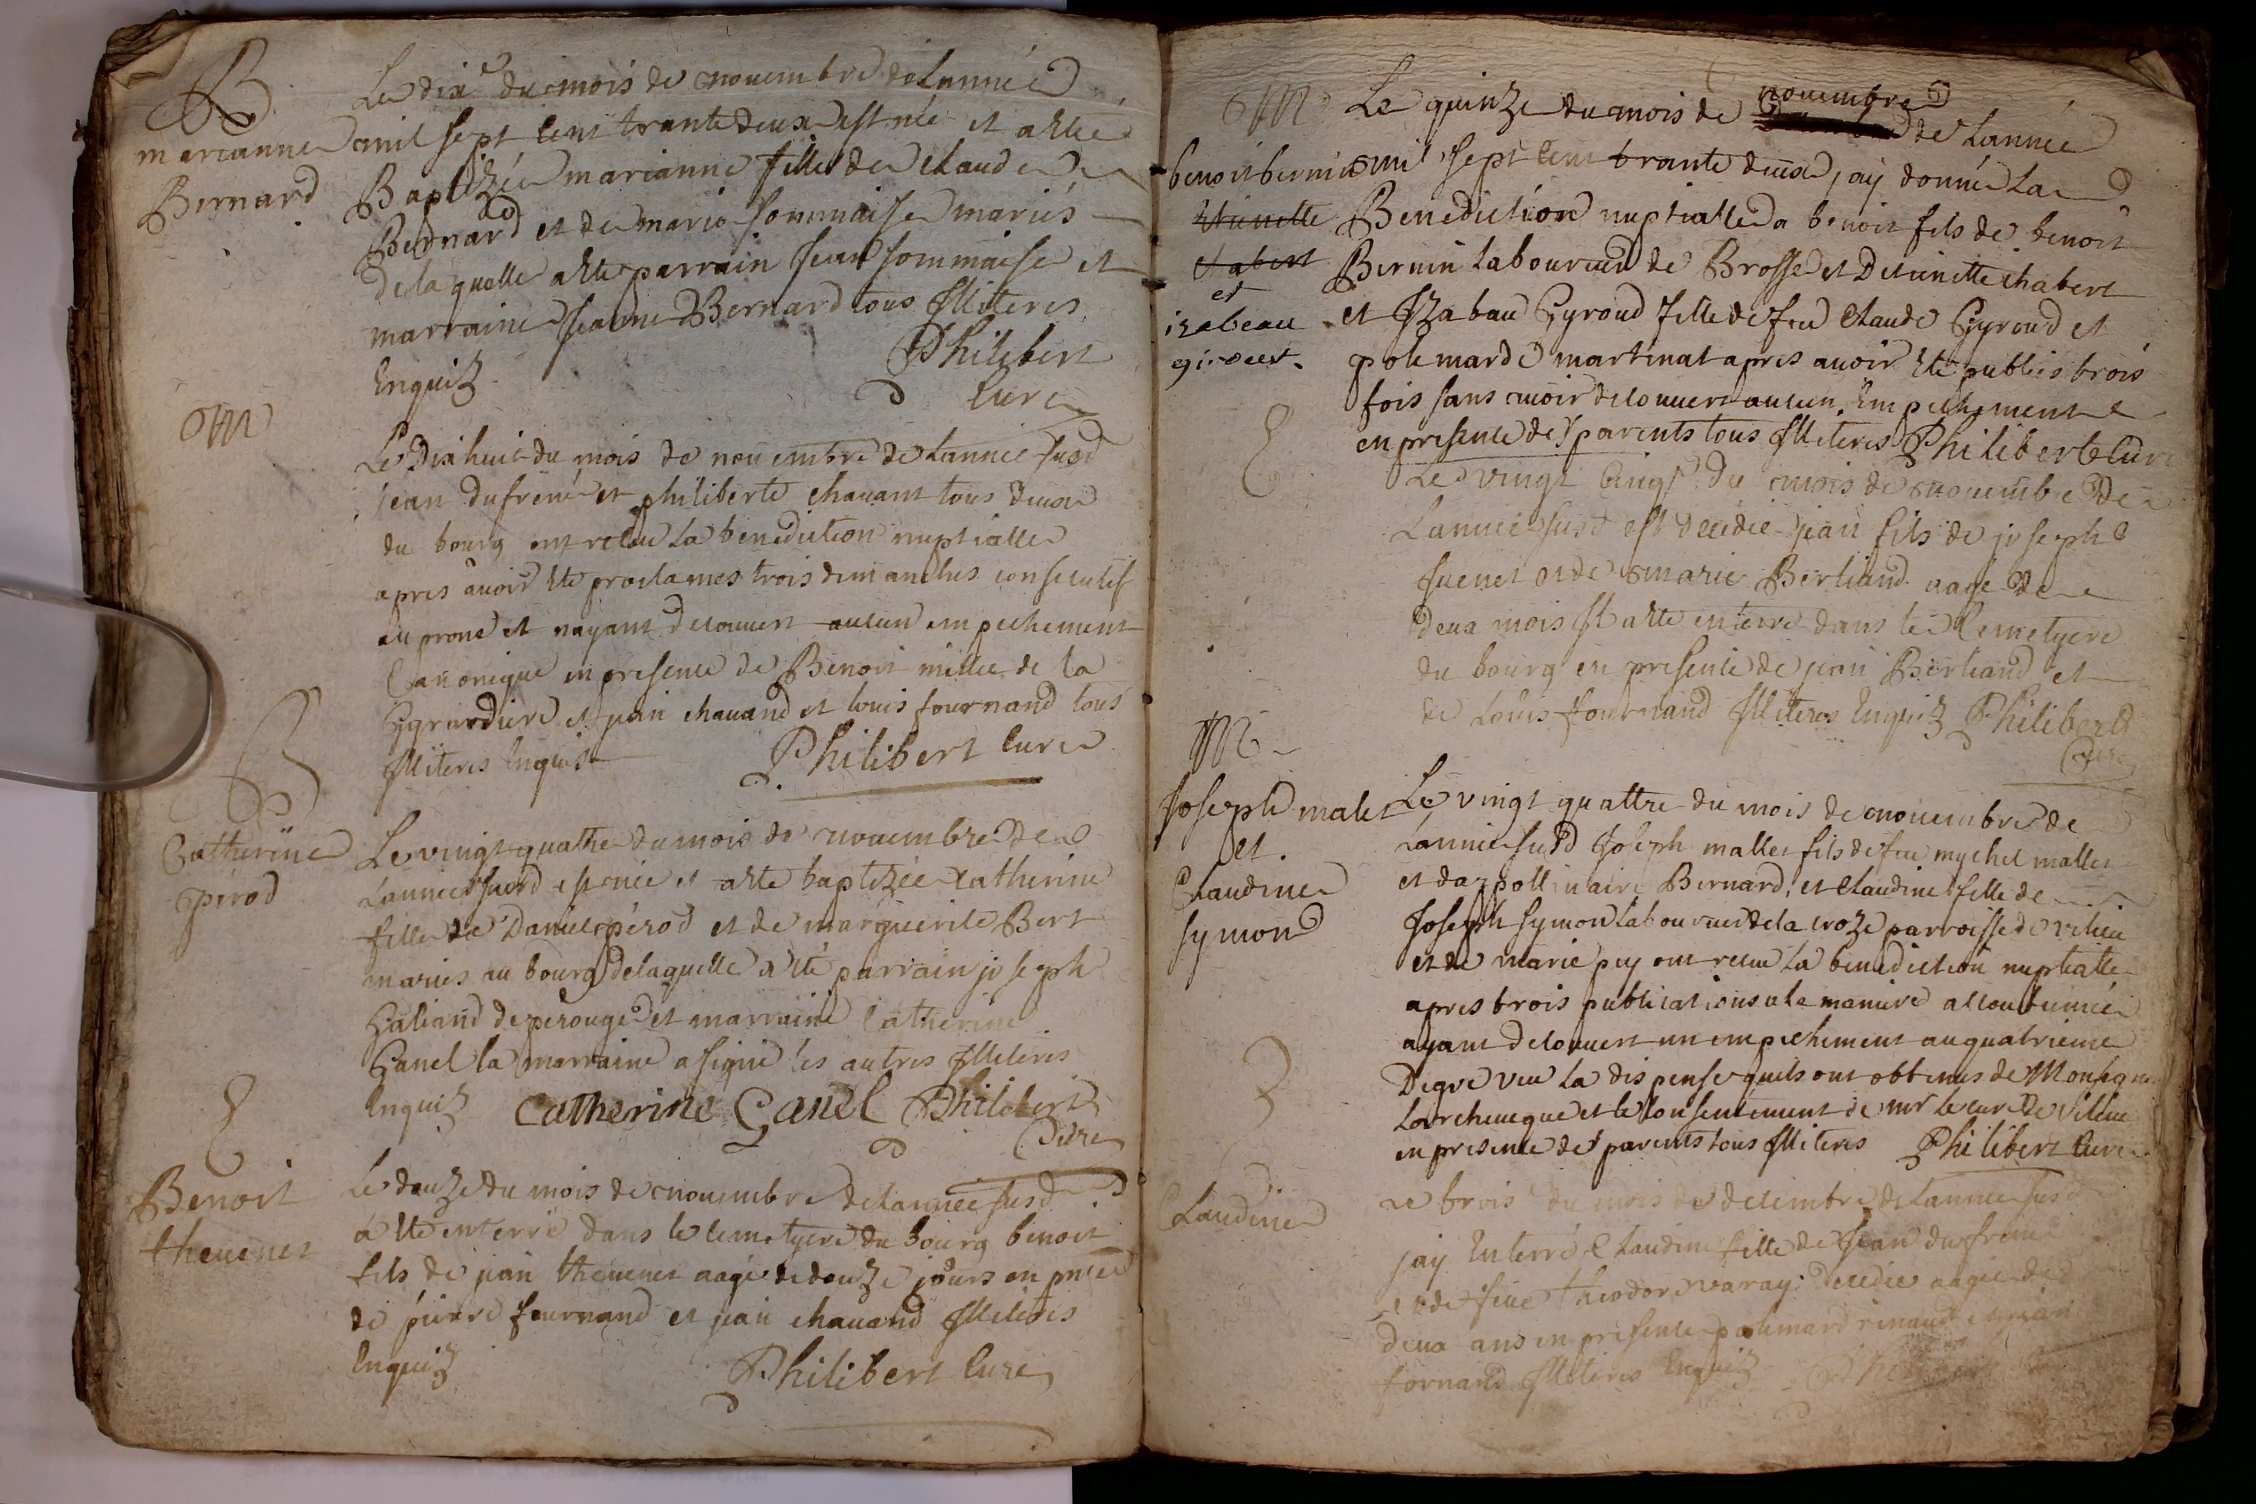 B
marianne
Bernard
Le dixe du mois de nouembre de Lannée
mil sept cent trante deux est née et a esté
Baptizée marianne fille de claude
Bernard et de marie sommaise mariés
de laquelle a esté parrain jean sommaise et
marraine jeanne Bernard tous illiteres
Enquiz Philibert
Curé
M
Le dixhuit du mois de nouembre de Lannée susd
jean dufrene et philiberte chauant tous deux
du bourg ont receu La benediction nuptialle
apres auoir esté proclamés trois dimanches consecutif
au prone et nayant decouuert aucun empechement
Canonique en presence de Benoit millet de la
Gyrardiere et jean chauand et louis fournand tous
illiteres Enquis Philibert curé
B
Catherine
pérod
Le vingt quatre du mois de nouembre de
Lannée susd est née et a esté baptizée catherine
fille de Daniel pérod et de marguerite Bert
mariés au bourg de laquelle a esté parrain joseph
Galiand de pérouge et marraine Catherine
Ganel la marraine a signé les autres illiteres
Enquiz Catherine Ganel Philibert
Curé
E
Benoit
theuenet
Le douze du mois de nouembre de lannée susd
a esté enterré dans le cemetyere du bourg benoit
fils de jean theuenet aagé de douze jours en pnce
de pierre fournand et jean chauand illiteres
Enquiz Philibert Curé
M
benoit bernin
et
izabeau
giroud
Le quinze du mois de nouembre de Lannée
mil sept cent trante deux jay donné La
Benediction nuptialle a benoit fils de benoit
Bernin Laboureur de Brosse et De chabert
et Izabau Gyroud fille de feu Claude Gyroud et
pole mardé martinat apres auoir esté publiés trois
fois sans auoir decouuert aucun Empechement
en presence des parents tous illiteres Philibert Curé
E
Le vingt cinqe du mois de nouembre de
Lannée susd est decedé jean fils de joseph
et de marie Berliand aagé de
deux mois et a esté enterré dans le Cemetyere
du bourg en presence de jean Berliand et
de Louis fournand illiteres Enquiz Philibert
Curé
M
Joseph malet
et
Claudine
symon
Le vingt quattre du mois de nouembre de
Lannée susd Joseph mallet fils de feu mychel mallet
et dappollinaire Bernard, et Claudine fille de
Joseph symon Laboureur de la croze parroisse de vilieu
et de marie puy ont receu La benediction nuptialle
apres trois publications a la maniere accoutumée
ayant decouuert un empechement au quatrieme
Degré veu La dispense quils ont obtenus de Monseigneur
Larcheueque et le consentement de mr le curé de vilieu
en presence des parents tous illiteres Philibert Curé
E
Claudine
Le trois du mois de decembre de lannée susd
jay Enterré Claudine fille de jean dufrene
et de feüe theodore varay decedée aagée de
deux ans en presence de polemard renaud et jean
fornand illiteres Enquiz Philibert